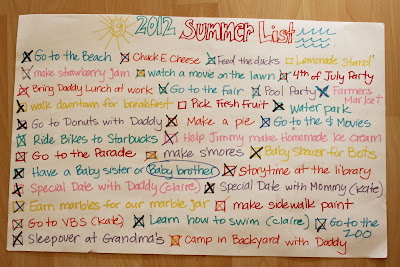 2012 Summer List
Go to the Beach Chuck E Cheese Feed the ducks Lemonade Stand
make strawberry jam watch a movie on the lawn 4th of July Party
Bring Daddy Lunch at work Go to the Fair Pool Party Farmers Market
walk downtown for breakfast Pick Fresh Fruit water park
Go to Donuts with Daddy Make a pie Go to the $ Movies
Ride Bikes to Starbucks Help Jimmy make Homemade Ice cream
Go to the Parade make s'mores Baby Shower for Bots
Have a Baby sister or Baby brother storytime at the library
Special Date with Daddy (Claire) Special Date with Mommy (Kate)
Earn marbles for our marble jar make sidewalk paint
Go to VBS (Kate) Learn how to swim (Claire) Go to the ZOO
Sleepover at Grandma's Camp in Backyard with Daddy